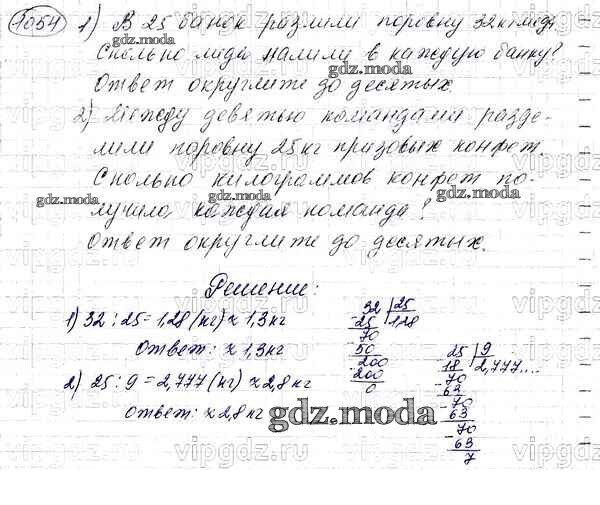 1054 1) В 25 банок разлили поровну 32 кг меда.
Сколько меда налили в каждую банку?
Ответ округлите до десятых.
2) Между девятью командами разде-
лили поровну 25 кг призовых конфет.
Сколько килограммов конфет по-
лучила каждая команда?
Ответ округлите до десятых.
Решение:
1) 32 : 25 = 1,28 (кг) ≈ 1,3 кг
Ответ: ≈ 1,3 кг
2) 25 : 9 = 2,777 (кг) ≈ 2,8 кг
Ответ: ≈ 2,8 кг
32 | 25
- 25 | 1,28
70
- 50
200
- 200
0
25 | 9
- 18 | 2,777....
70
- 63
70
- 63
70
- 63
7
gdz.moda
gdz.moda
gdz.moda
gdz.moda
gdz.moda
gdz.moda